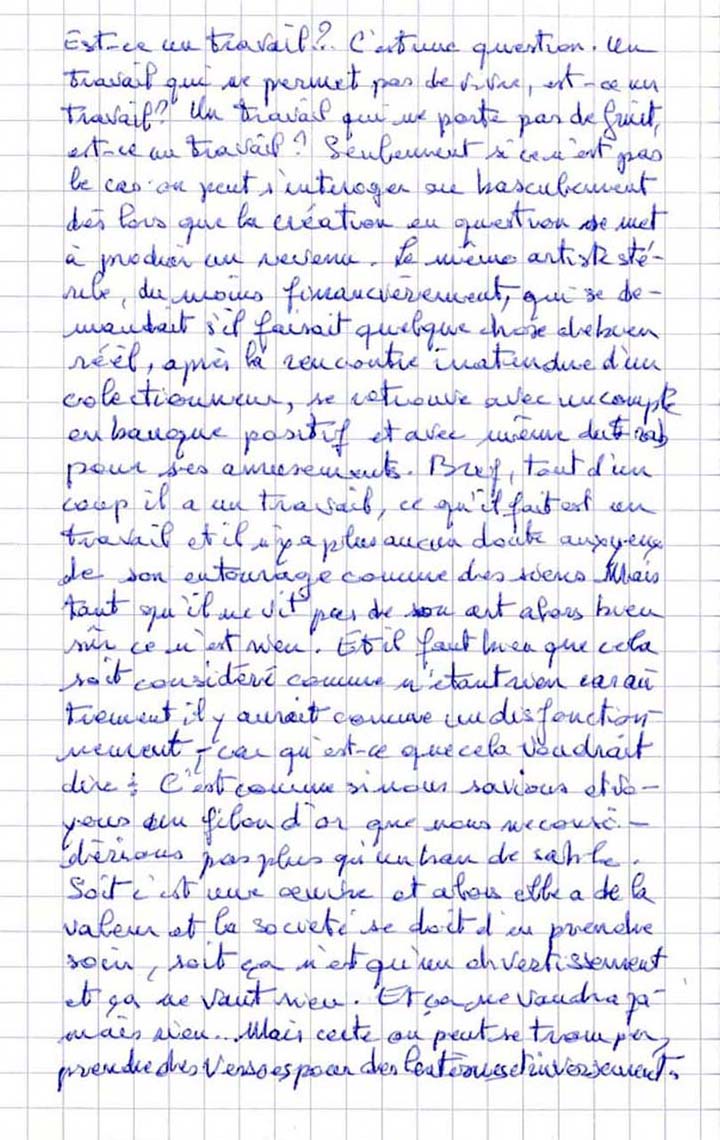 Est-ce un travail? C'est une question. Un
travail qui ne permet pas de vivre, est-ce un
travail? Un travail qui ne porte pas de fruit,
est-ce un travail? Seulement si ce n'est pas
le cas on peut s'interoger ou basculement
dès lors que la création en question se met
à produir un revenu. Le même artiste sté-
rile, du moins financièrement, qui se de-
mandait s'il faisait quelque chose de bien
réèl, après la rencontre inatendue d'un
colectionneur, se retrouve avec un compte
en banque positif et avec même du rab
pour ses amusements. Bref, tout d'un
coup il a un travail, ce qu'il fait est un
travail et il n'y a plus aucun doute aux yeux
de son entourage comme des siens Mais
tant qu'il ne vit pas de son art alors bien
sûr ce n'est rien. Et il faut bien que cela
soit considéré comme n'étant rien car au
trement il y aurait comme un disfonction-
nement, car qu'est-ce que cela voudrait
dire? C'est comme si nous savions et vo-
yons un filon d'or que nous ne consi-
dérions pas plus qu'un banc de sable.
Soit c'est une œuvre et alors elle a de la
valeur et la société se doit d'en prendre
soin, soit ça n'est qu'un divertissement
et ça ne vaut rien. Et ça ne vaudra ja-
mais rien... Mais certe on peut se tromper,
prendre des Vessoes pour des lanternes et inversement.